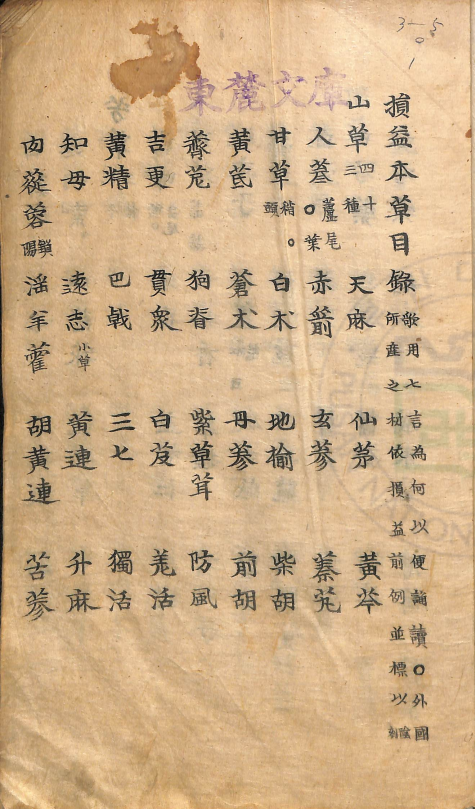 3-5
0
1
東麓文庫
損益本草目錄 歌用七言為何以便論讀○外國
所産之材依損益前例並標以陰刻
山草 四十三種 天麻 仙茅 黃芩
人蔘 蘆尾○葉 赤箭 玄蔘 蓁艽
甘草 梢頭○ 白朮 地楡 柴胡
黃茋 蒼朮 丹蔘 前胡
薺苨 狗脊 紫草茸 防風
吉更 貫衆 白芨 羗活
黃精 巴戟 三七 獨活
知母 遠志 小草 黃連 升麻
肉蓯蓉 鎖陽 淫羊藿 胡黃連 苦蔘